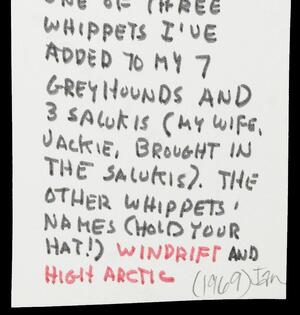 ONE OF THREE
WHIPPETS I'VE
ADDED TO MY 7
GREYHOUNDS AND
3 SALUKIS (MY WIFE,
JACKIE, BROUGHT IN
THE SALUKIS). THE
OTHER WHIPPETS'
NAMES (HOLD YOUR
HAT!) WINDRIFT AND
HIGH ARCTIC (1969) Ian